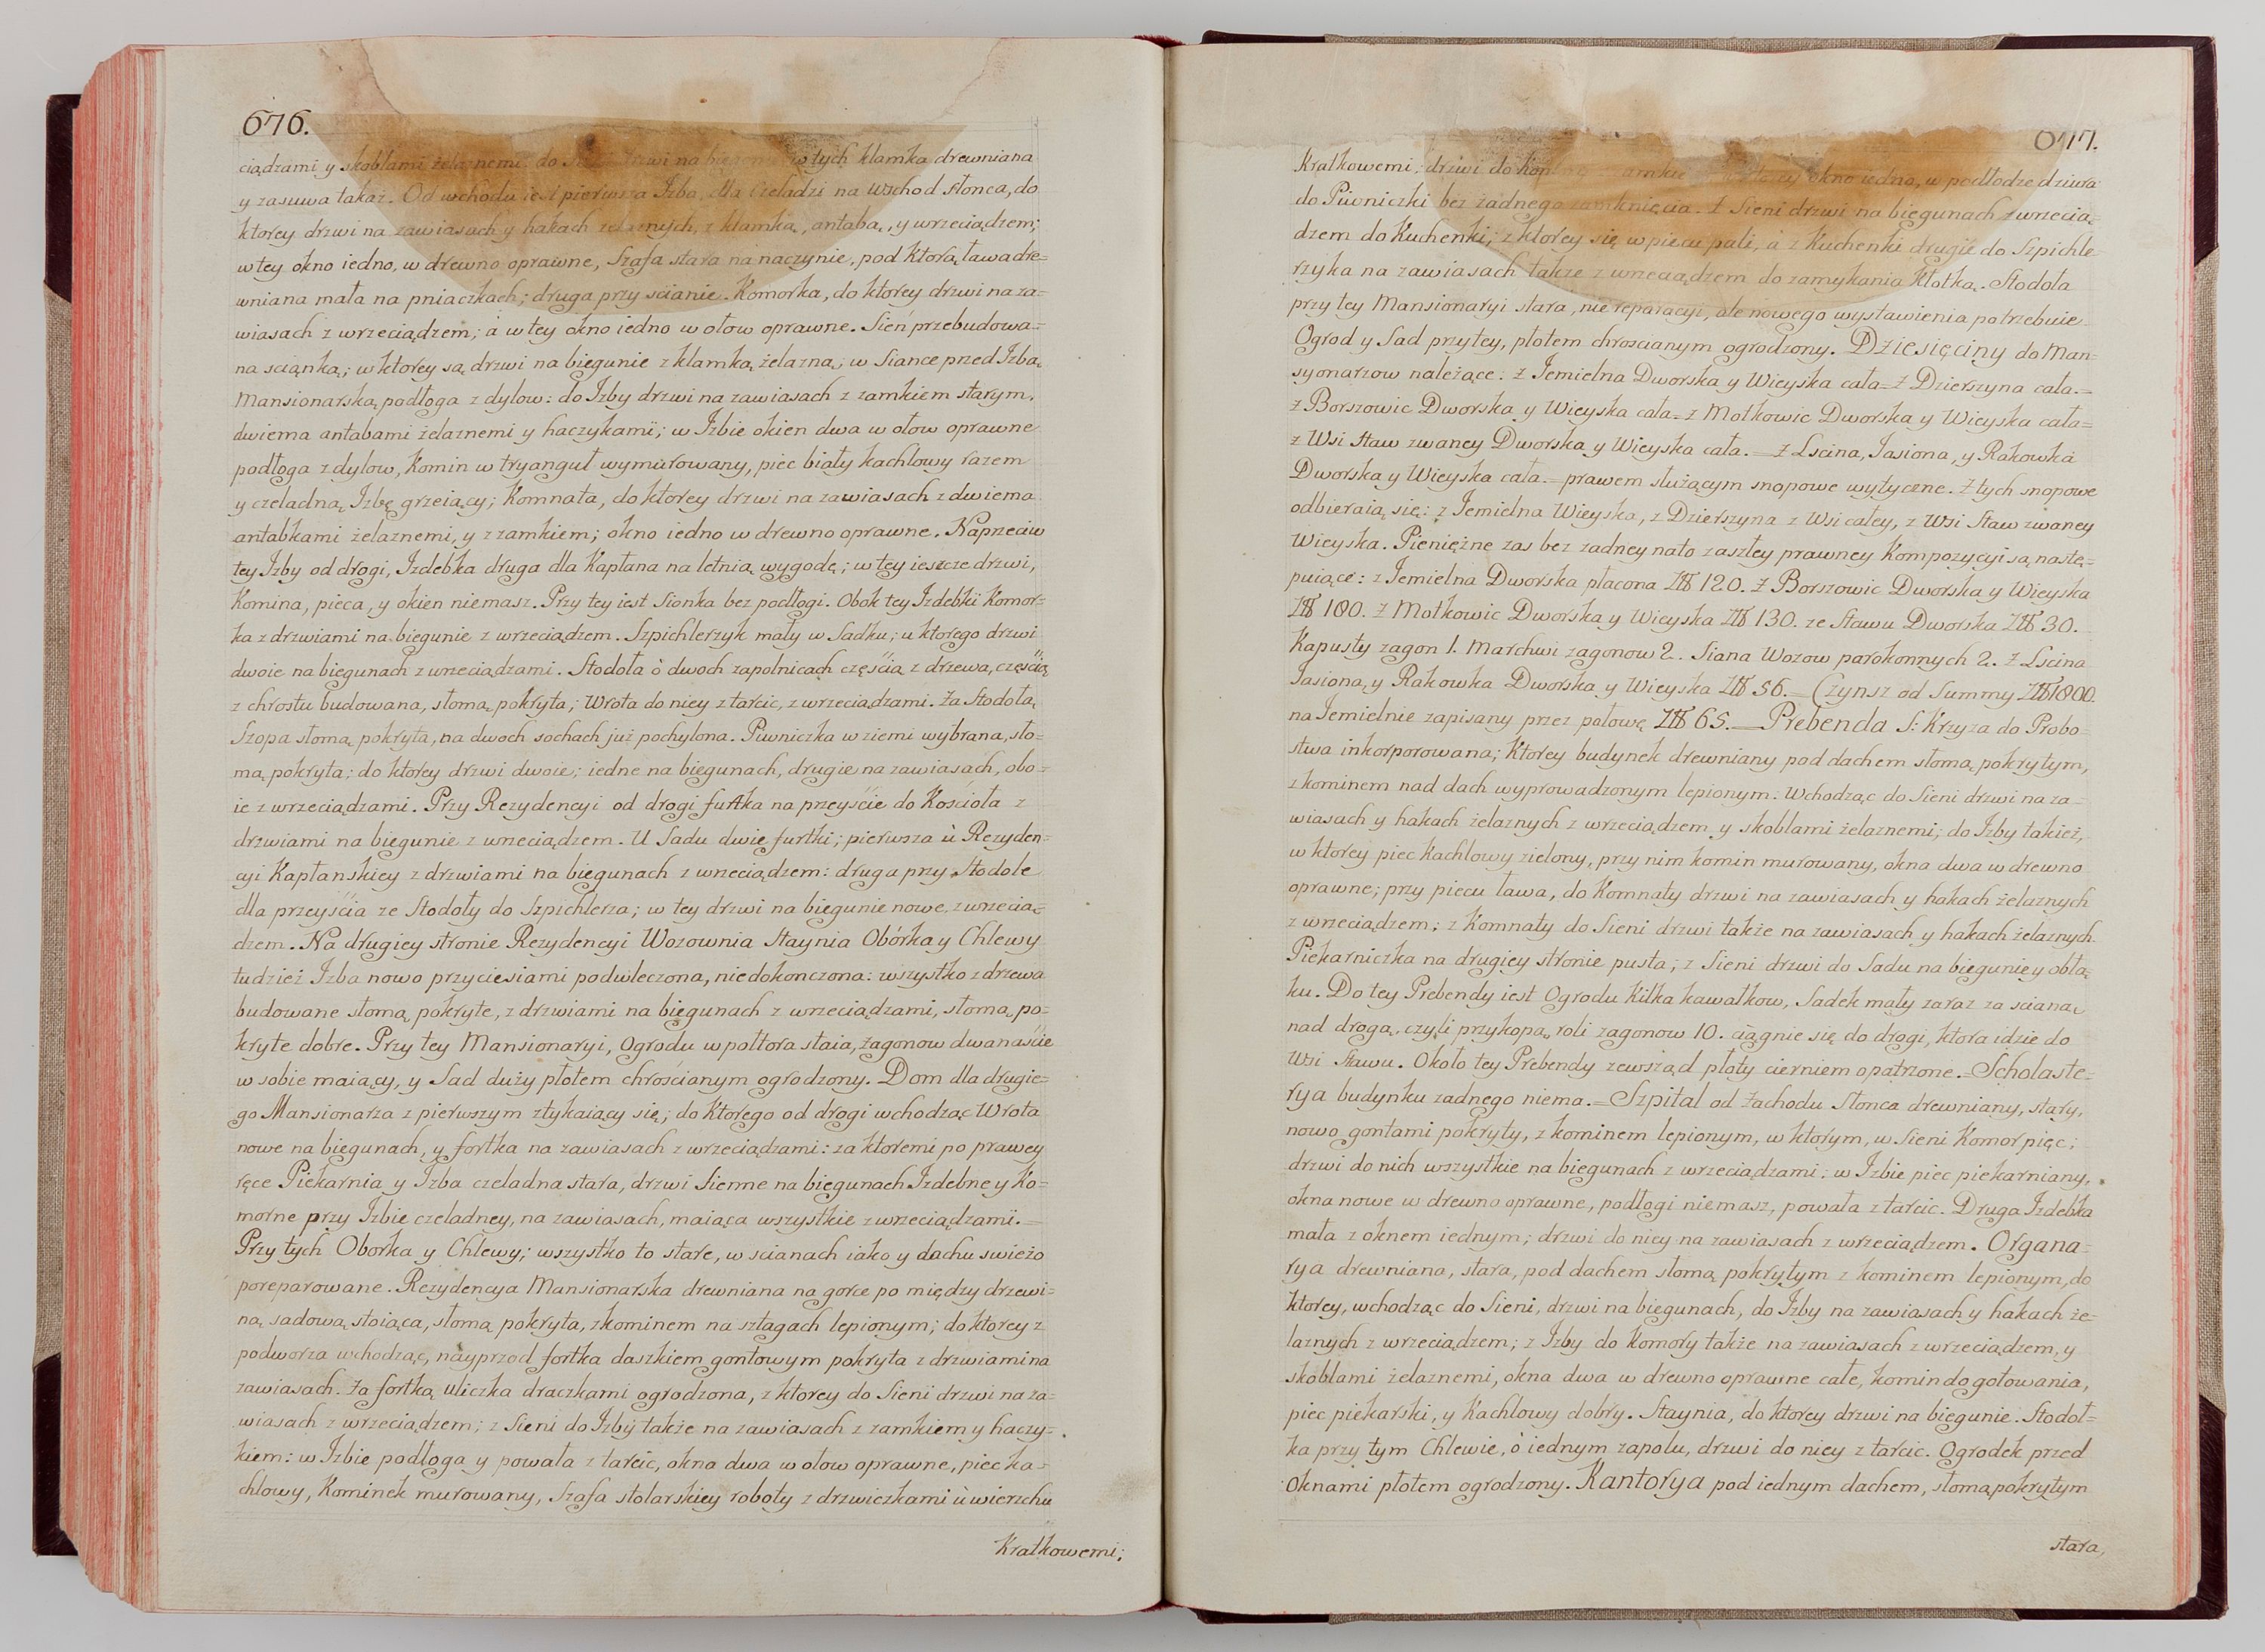 676.
ciądzami y skoblami żelaznemi do drzwi na biegunie w tych klamka drewniana
y zasuwa takaż. Od wchodu iest pierwsza Izba dla Czeladzi na Wschod Słonca, do
ktorey drzwi na zawiasach y hakach żelaznych, z klamką, antabą, y wrzeciądzem;
w tey okno iedno, w drewno oprawne, Szafa stara na naczynie, pod ktorą ława dre=
wniana mała na pniaczkach; druga przy scianie. Komorka, do ktorey drzwi na za=
wiasach z wrzeciądzem; à w tey okno iedno w ołow oprawne. Sień przebudowa=
na scianką; w ktorey są drzwi na biegunie z klamką żelazną; w Siance przed Izbą
Mansionarską podłoga z dylow: do Izby drzwi na zawiasach z zamkiem starym,
dwiema antabami żelaznemi y haczykami; w Izbie okien dwa w ołow oprawne
podłoga z dylow, Komin w tryanguł wymurowany, piec biały kachlowy razem
y czeladną Izbę grzeiący; Komnata, do ktorey drzwi na zawiasach z dwiema
antabkami żelaznemi, y z zamkiem; okno iedno w drewno oprawne. Naprzeciw
tey Izby od drogi, Izdebka druga dla Kapłana na letnią wygodę; w tey ieszcze drzwi,
Komina, pieca, y okien niemasz. Przy tey iest Sionka bez podłogi. Obok tey Izdebki Komor=
ka z drzwiami na biegunie z wrzeciądzem. Szpichlerzyk mały w Sadku; u ktorego drzwi
dwoie na biegunach z wrzeciądzami. Stodoła ò dwoch zapolnicach częścią z drzewa, częścią
z chrostu budowana, słomą pokryta; Wrota do niey z tarcic, z wrzeciądzami. Za Stodołą
Szopa słomą pokryta, na dwoch sochach już pochylona. Piwniczka w ziemi wybrana, sło=
mą pokryta; do ktorey drzwi dwoie; iedne na biegunach, drugie na zawiasach, obo=
ie z wrzeciądzami. Przy Rezydencyi od drogi furtka na przeyście do Kościoła z
drzwiami na biegunie z wrzeciądzem. U Sadu dwie furtki; pierwsza ù Rezyden=
cyi Kapłanskiey z drzwiami na biegunach z wrzeciądzem: druga przy Stodole
dla przeyścia ze Stodoły do Szpichlerza; w tey drzwi na biegunie nowe, z wrzecią=
dzem. Na drugiey stronie Rezydencyi Wozownia Staynia Obórka y Chlewy
tudzież Izba nowo przyciesiami podwleczona, niedokonczona: wszystko z drzewa
budowane słomą pokryte, z drzwiami na biegunach z wrzeciądzami, słomą po=
kryte dobre. Przy tey Mansionaryi, Ogrodu w połtora staia, zagonow dwanaście
w sobie maiący, y Sad duży płotem chrościanym ogrodzony. Dom dla drugie=
go Mansionarza z pierwszym ztykaiący się; do ktorego od drogi wchodząc Wrota
nowe na biegunach, y fortka na zawiasach z wrzeciądzami: za ktoremi po prawey
ręce Piekarnia y Izba czeladna stara, drzwi Sienne na biegunach Izdebne y Ko=
morne przy Izbie czeladney, na zawiasach, maiąca wszystkie z wrzeciądzami.=
Przy tych Oborka y Chlewy; wszystko to stare, w scianach iako y dachu swieżo
poreparowane. Rezydencya Mansionarska drewniana na gorce po między drzewi=
ną sadową stoiąca, słomą pokryta, z kominem na sztagach lepionym; do ktorey z
podworza wchodząc, nayprzod fortka daszkiem gontowym pokryta z drzwiami na
zawiasach. Za fortką uliczka draczkami ogrodzona, z ktorey do Sieni drzwi na za=
wiasach z wrzeciądzem; z Sieni do Izby także na zawiasach z zamkiem y haczy=
kiem: w Izbie podłoga y powała z tarcic, okna dwa w ołow oprawne, piec ka=
chlowy, Kominek murowany, Szafa stolarskiey roboty z drzwiczkami ù wierzchu
Kratkowemi;
677.
Kratkowemi; drzwi do Kom okno iedno, w podłodze dziura
do Piwniczki bez żadnego zamknięcia. Z Sieni drzwi na biegunach z wrzecią=
dzem do Kuchenki; z ktorey się w piecu pali, à z Kuchenki drugie do Szpichle=
rzyka na zawiasach także z wrzeciądzem do zamykania Kłotką. Stodoła
przy tey Mansionaryi stara, nie reparacyi, ale nowego wystawienia potrzebuie.
Ogrod y Sad przy tey, płotem chroscianym ogrodzony. Dziesięciny do Man=
syonarzow należące: z Jemielna Dworska y Wieyska cała= z Dzierszyna cała.=
z Borszowic Dworska y Wieyska cała= z Motkowic Dworska y Wieyska cała=
z Wsi Staw zwaney Dworska y Wieyska cała.= z Lscina, Jasiona, y Rakowka
Dworska y Wieyska cała.= prawem służącym snopowe wytyczne. Z tych snopowe
odbieraią się: z Jemielna Wieyska, z Dzierszyna z Wsi całey, z Wsi Staw zwaney
Wieyska. Pieniężne zas bez żadney na to zaszłey prawney Kompozycyi są nastę=
puiące: z Jemielna Dworska płacona Zł 120. Z Borszowic Dworska y Wieyska
Zł 100. Z Motkowic Dworska y Wieyska Zł 130. ze Stawu Dworska Zł 30.
Kapusty zagon 1. Marchwi zagonow 2. Siana Wozow parokonnych 2. Z Lscina
Jasiona, y Rakowka Dworska y Wieyska Zł 56.= Czynsz od Summy Zł 1800.
na Jemielnie zapisany przez połowę Zł 65.= Prebenda S: Krzyza do Probo=
stwa inkorporowana; Ktorey budynek drewniany pod dachem słomą pokrytym,
z kominem nad dach wyprowadzonym lepionym: Wchodząc do Sieni drzwi na za=
wiasach y hakach żelaznych z wrzeciądzem y skoblami żelaznemi; do Izby takież,
w ktorey piec Kachlowy zielony, przy nim komin murowany, okna dwa w drewno
oprawne; przy piecu ława, do Komnaty drzwi na zawiasach y hakach żelaznych
z wrzeciądzem; z Komnaty do Sieni drzwi także na zawiasach y hakach żelaznych.
Piekarniczka na drugiey stronie pusta; z Sieni drzwi do Sadu na biegunie y obłą=
ku. Do tey Prebendy iest Ogrodu Kilka kawałkow, Sadek mały zaraz za scianą
nad drogą, czyli przykopą, roli zagonow 10. ciągnie się do drogi, ktora idzie do
Wsi Stawu. Około tey Prebendy zewsząd płoty cierniem opatrzone.= Scholaste=
rya budynku zadnego niema.= Szpital od Zachodu Słonca drewniany, stary,
nowo gontami pokryty, z kominem lepionym, w ktorym, w Sieni Komor pięc;
drzwi do nich wszystkie na biegunach z wrzeciądzami: w Izbie piec piekarniany,
okna nowe w drewno oprawne, podłogi niemasz, powała z tarcic. Druga Izdebka
mała z oknem iednym; drzwi do niey na zawiasach z wrzeciądzem. Organa=
rya drewniana, stara, pod dachem słomą pokrytym z kominem lepionym, do
ktorey, wchodząc do Sieni, drzwi na biegunach, do Izby na zawiasach y hakach że=
laznych z wrzeciądzem; z Izby do Komory także na zawiasach z wrzeciądzem, y
skoblami żelaznemi, okna dwa w drewno oprawne całe, komin do gotowania,
piec piekarski, y Kachlowy dobry. Staynia, do ktorey drzwi na biegunie. Stodoł=
ka przy tym Chlewie, ò iednym zapolu, drzwi do niey z tarcic. Ogrodek przed
Oknami płotem ogrodzony. Kantorya pod iednym dachem, słomą pokrytym
stara,